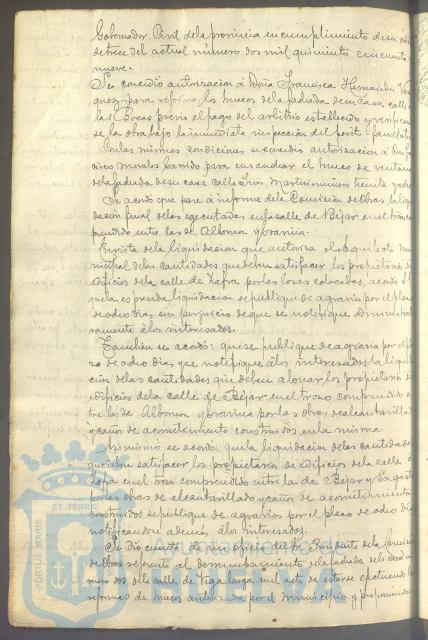 Gobernador Civil de la provincia en cumplimiento de su
de trece del actual número dos mil quinientos cincuenta
nueve.
Se concedio autorizacion á Doña Francisca Hernandez
para reformar los huecos de la fachada de su casa calle
las Pocas previo el pago del arbitrio establecido y verifican
se la obra bajo la inmediata inspeccion del perito
En las mismas condiciones se concedio autorizacion á Don
Morales Garrido para ensanchar el hueco de ventana
de la fachada de su casa calle Luis Martinez numero treinta y
Se acordo que pase á informe de la Comision de Obras la liqui
dacion final de las ejecutadas en la calle de Bejar en el trozo
prendido entre las de Albornoz y
En vista de la liquidacion que autoriza el Arquitecto mu
nicipal de las cantidades que deben satisfacer los propietarios
edificios de la calle de Zafra por las losas colocadas, acordo
que la espresada liquidacion se publique de agravios por el plazo
de ocho dias sin perjuicio de que se notifique
á los interesados.
Tambien se acordó: que se publique de agravios por el
zo de ocho dias y se notifique á los interesados la liquida
cion de las cantidades que deben abonar los propietarios
edificios de la calle de Bejar en el trozo comprendido
tre las de Albornoz y por las obras de alcantarillado
y caños de acometimiento construidos en la misma.
Asimismo se acordo: que la liquidacion de las cantidades
que deben satisfacer los propietarios de edificios de la calle
Zafra en el trozo comprendido entre la de Bejar y
por las obras de alcantarillado y caños de acometimiento
construidos se publique de agravios por el plazo de ocho dias
notificandose además á los interesados.
Se dio cuenta de un oficio del Sr. Presidente de la Comision
de Obras referente al derrumbamiento de la fachada de la casa nú
mero dos de la calle de Vega larga en el acto de estarse efectuando
reformas de huecos autorizada por el municipio y proponiendo
PORTUS MARIS
ET TERRE
Ayuntamiento de
Huelva